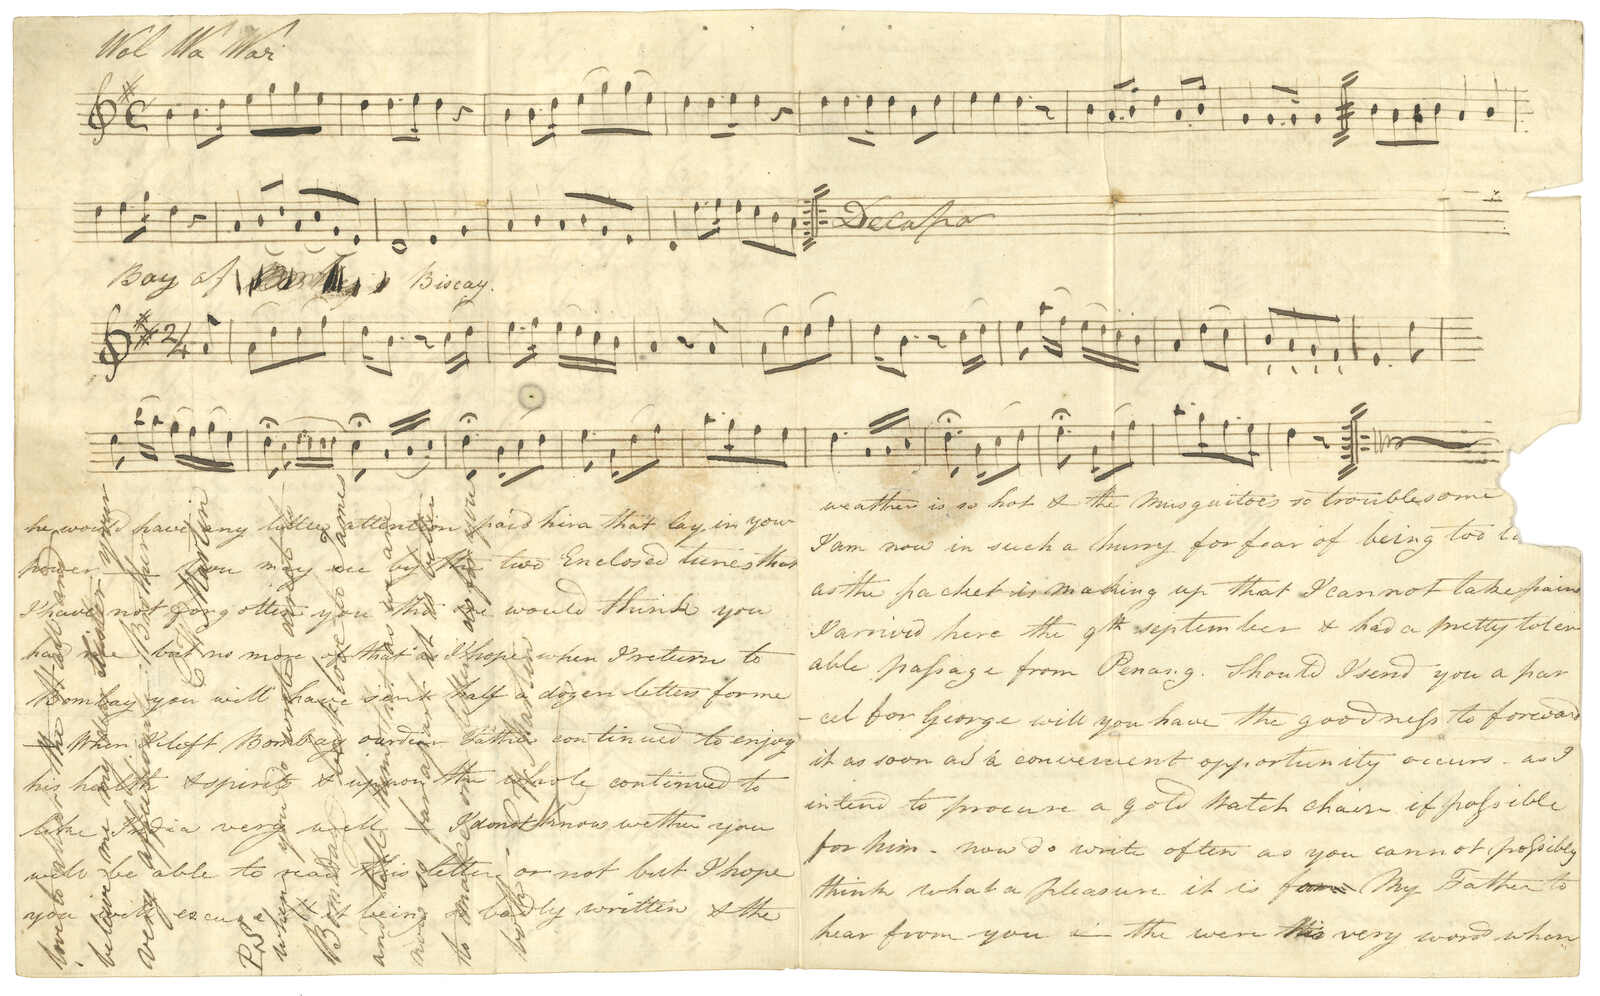 Wol Wa War
Decapo
Bay of Biscay.
2/4
he would have any little attention paid him that lay in your
power — you may see by the two Enclosed tunes that
I have not forgotten you tho' one would think you
had me but no more of that as I hope when I return to
Bombay you will have sent half a dozen letters for me
— When I left Bombay our dear Father continued to enjoy
his health & spirits & upon the whole continued to
like India very well — I do not know wether you
will be able to read this letter or not but I hope
you will excuse it being so badly written & the
weather is so hot & the Musquitoes so troublesome
I am now in such a hurry for fear of being too
as the packet is making up that I cannot take pains
I arrived here the 9th september & had a pretty toler
able passage from Penang. Should I send you a par
-cel for George will you have the goodness to forward
it as soon as a convenient opportunity occurs. as I
intend to procure a gold Watch chain if possible
for him - now do write often as you cannot possibly
think what a pleasure it is for My Father to
hear from you in the were this very word when
love to all the and
believe me my dear Sister your
very affectionate Brother
C Martin
P.S.
when you
Bombay before
and tell him
now so far apart
to make
both. Martin